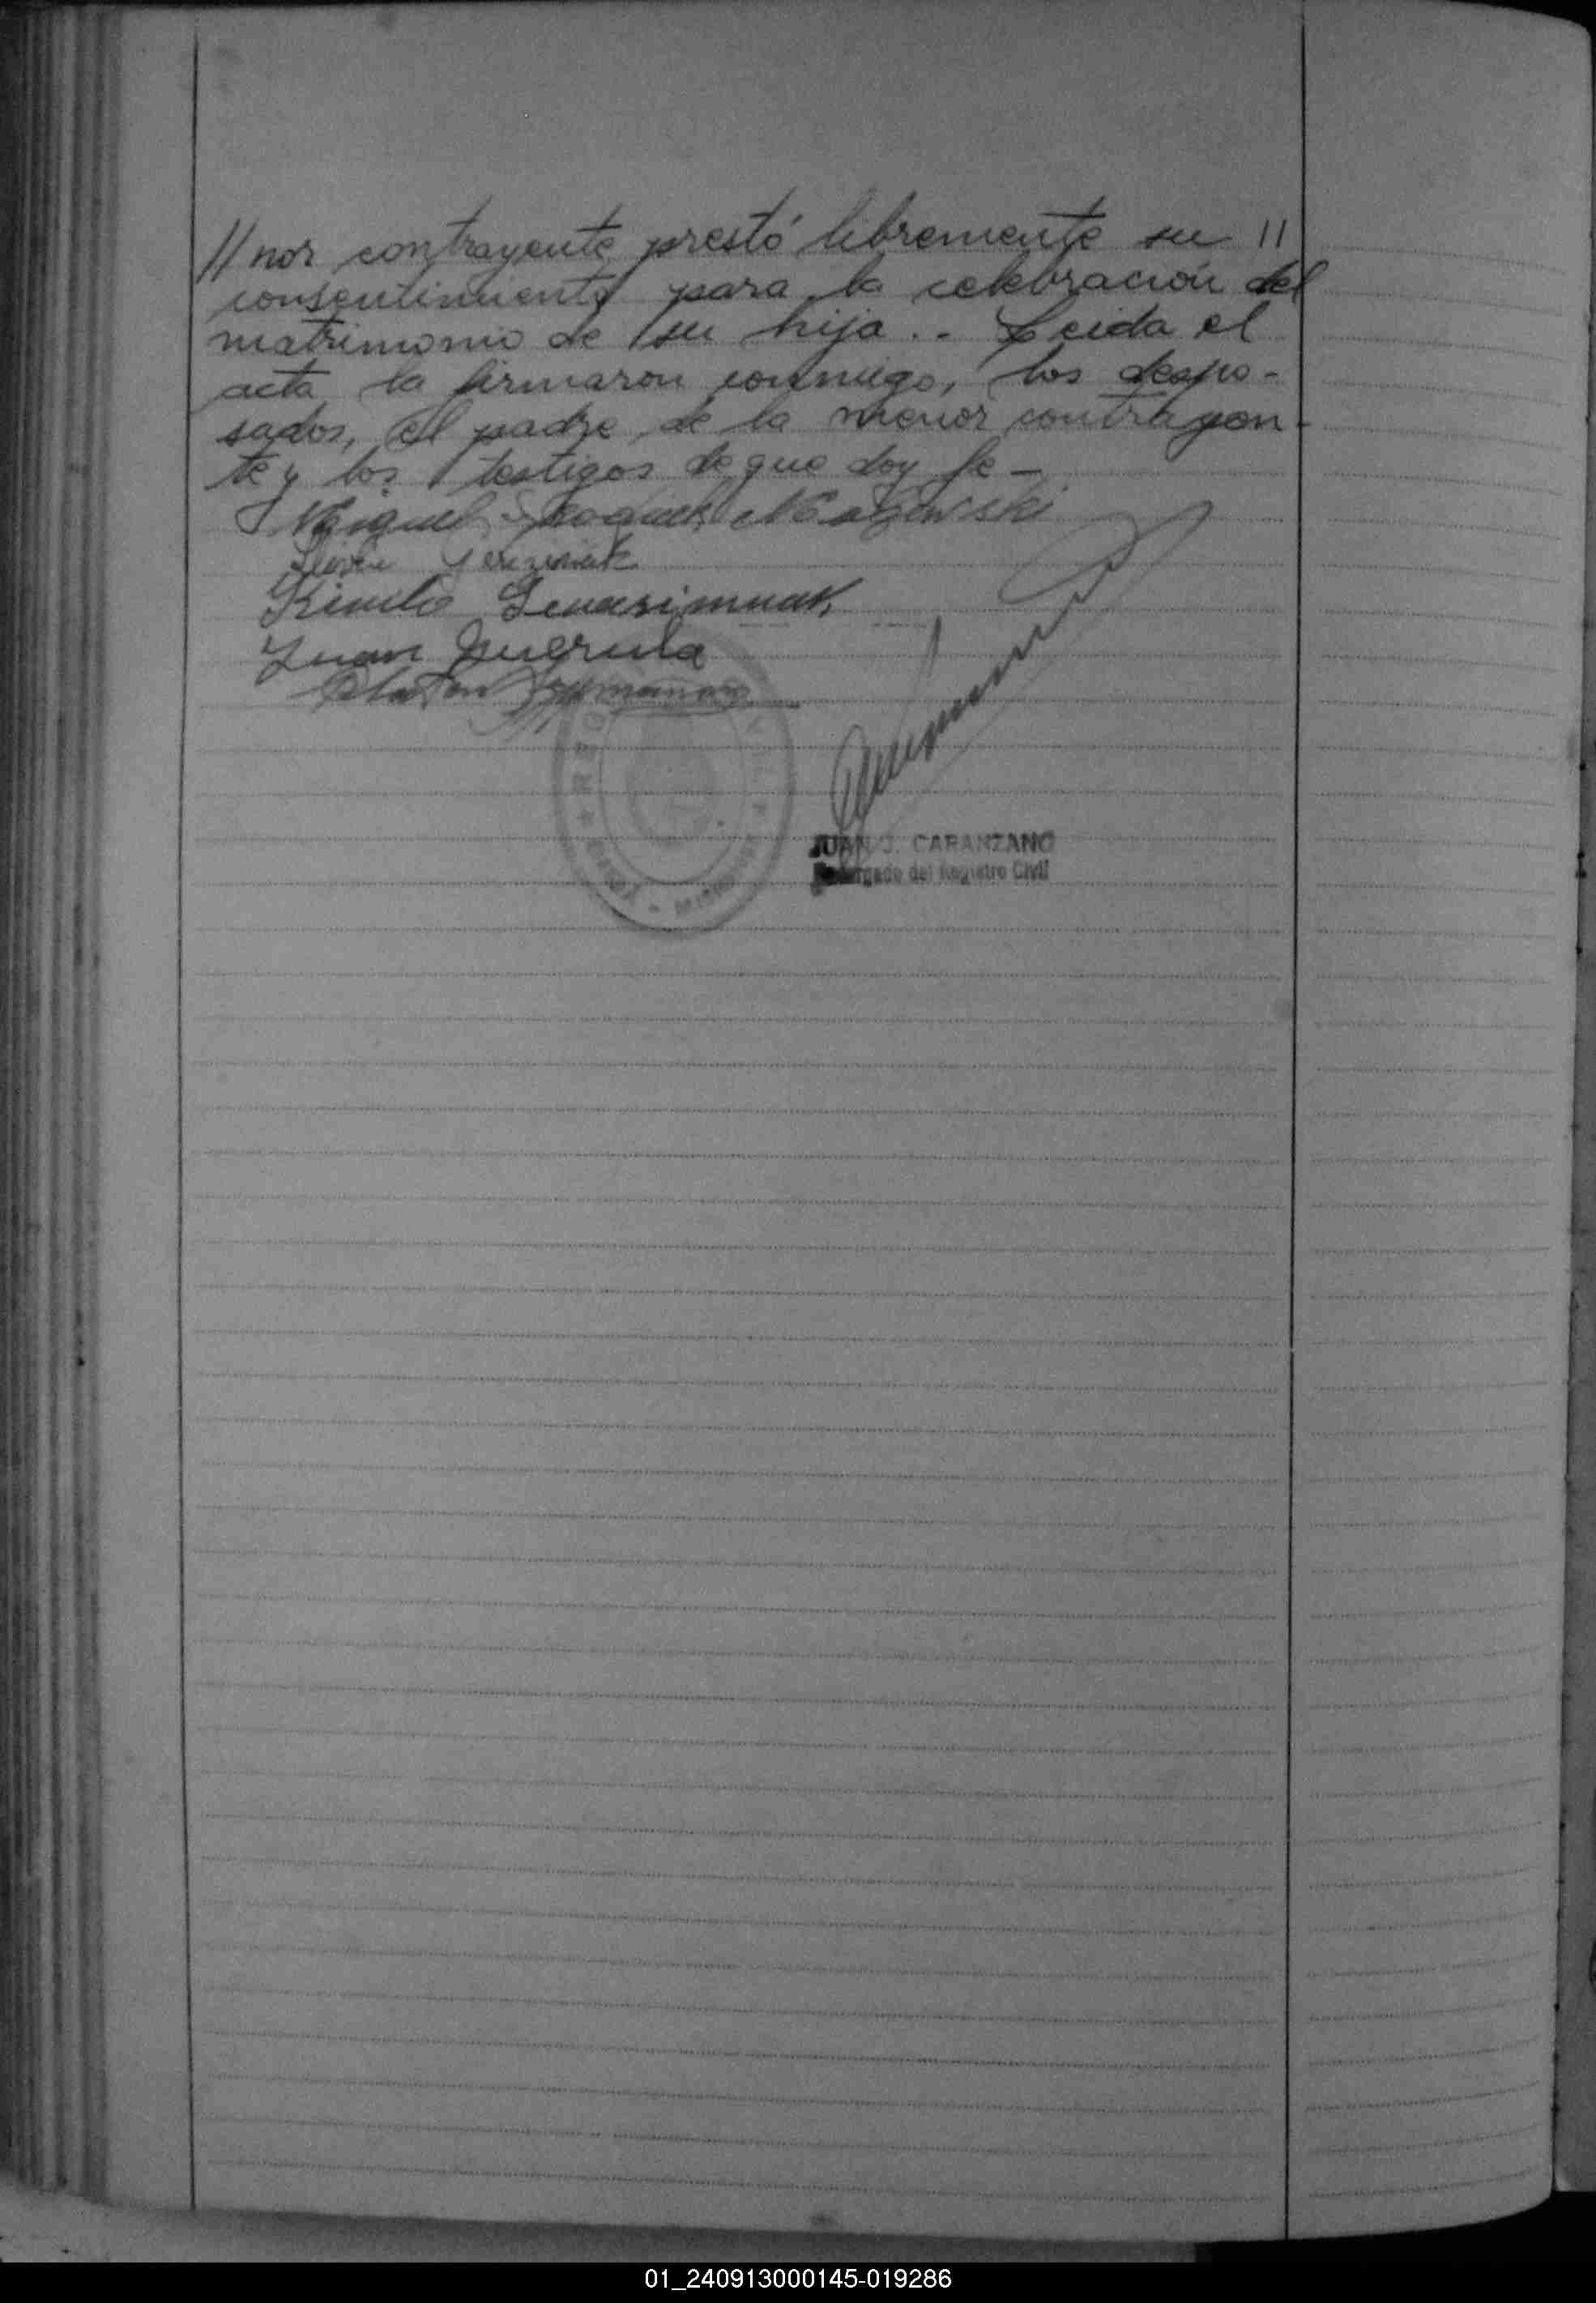 // nor contrayente prestó libremente su //
consentimiento para la celebración del
matrimonio de su hija .- Leida el
acta la firmaron conmigo, los despo-
sados, el padre de la menor contrayen-
te y los testigos de que doy fe -
Miguel
Juan
JUAN J. CARANZANO
Encargado del Registro Civil
01_240913000145-019286